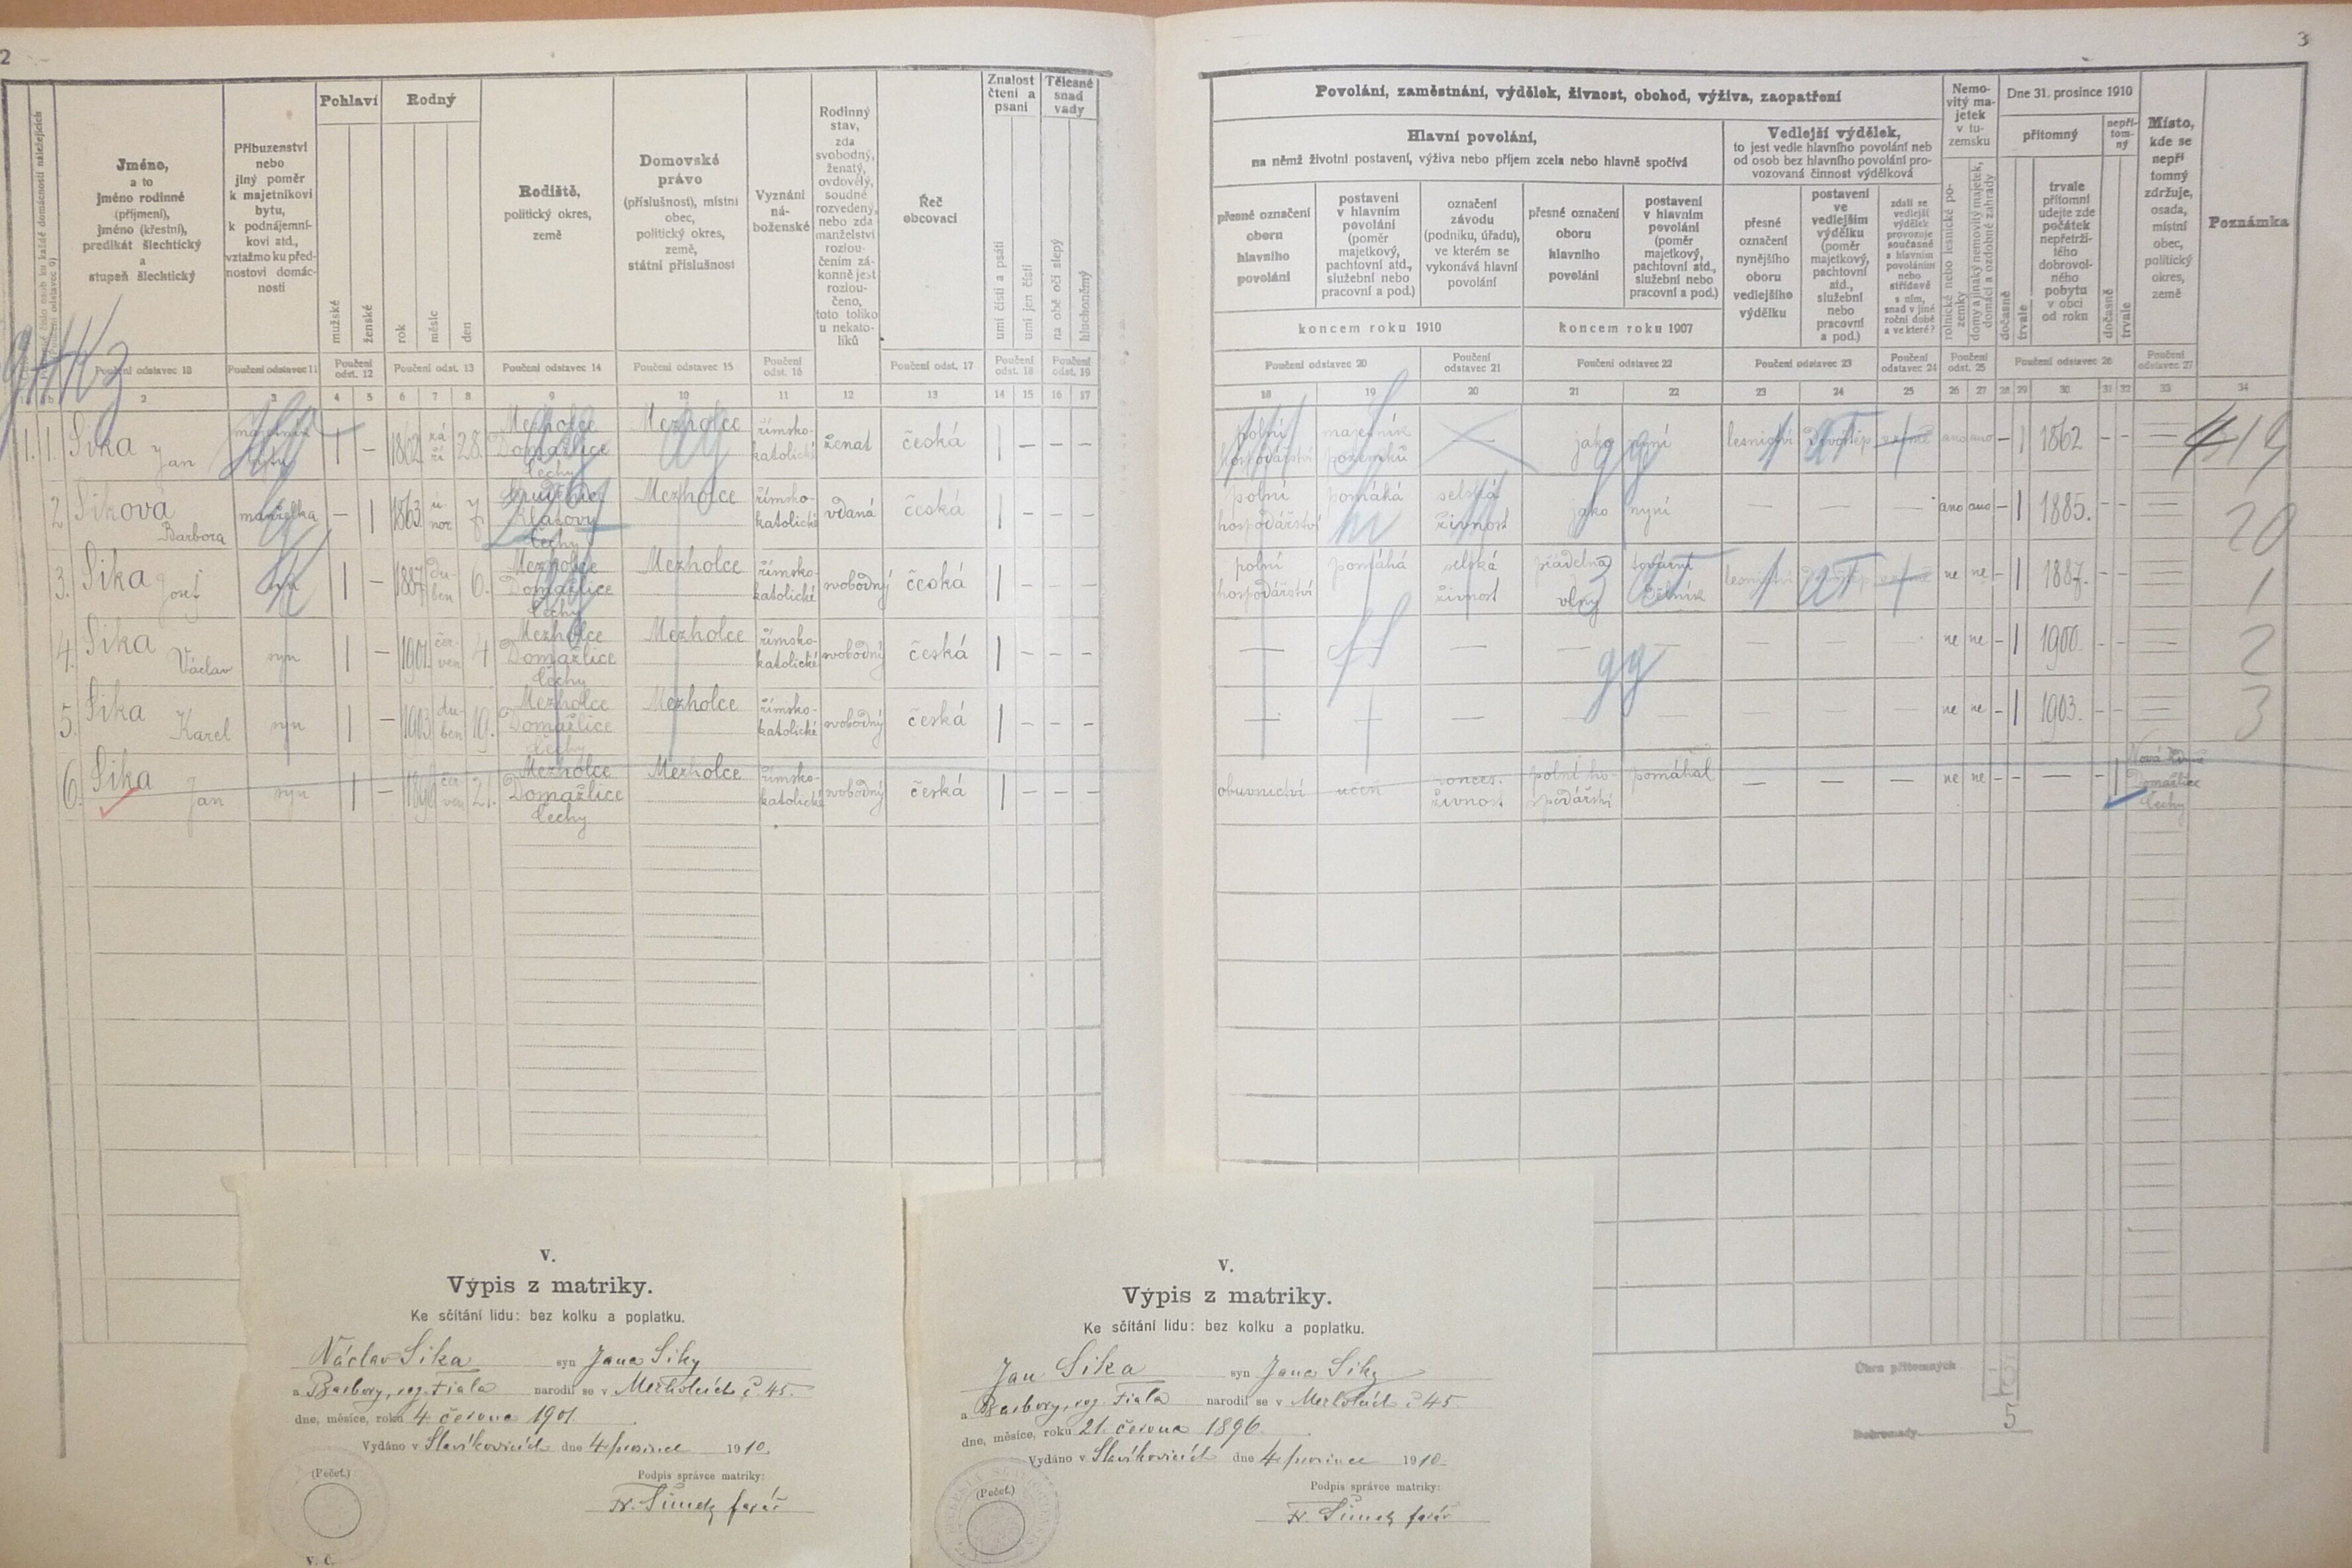 2
3
Jméno,
a to
jméno rodinné
(příjmení),
jméno (křestní),
predikát šlechtický
a
stupeň šlechtický
Příbuzenství
nebo
jiný poměr
k majetníkovi
bytu,
k podnájemní-
kovi atd.,
vztažmo ku před-
nostovi domác-
nosti
Pohlaví
mužské
ženské
Rodný
rok
měsíc
den
Rodiště,
politický okres,
země
Domovské
právo
(příslušnost), místní
obec,
politický okres,
země,
státní příslušnost
Vyznání
ná-
boženské
Rodinný
stav,
zda
svobodný,
ženatý,
ovdovělý,
soudně
rozvedený,
nebo zda
manželství
rozlou-
čením zá-
konně jest
rozlou-
čeno,
toto toliko
u nekato-
líků
Řeč
obcovací
Znalost
čtení a
psaní
umí čísti a psáti
umí jen čísti
Tělesné
snad
vady
na obě oči slepý
hluchoněmý
Poučení odstavec 10
Poučení odstavec 11
Poučení
odst. 12
Poučení odst. 13
Poučení odstavec 14
Poučení odstavec 15
Poučení
odst. 16
Poučení odst. 17
Poučení
odst. 18
Poučení
odst. 19
2 3 4 5 6 7 8 9 10 11 12 13 14 15 16 17
Povolání, zaměstnání, výdělek, živnost, obchod, výživa, zaopatření
Hlavní povolání,
na němž životní postavení, výživa nebo příjem zcela nebo hlavně spočívá
Vedlejší výdělek,
to jest vedle hlavního povolání neb
od osob bez hlavního povolání pro-
vozovaná činnost výdělková
přesné označení
oboru
hlavního
povolání
postavení
v hlavním
povolání
(poměr
majetkový,
pachtovní atd.,
služební nebo
pracovní a pod.)
označení
závodu
(podniku, úřadu),
ve kterém se
vykonává hlavní
povolání
přesné označení
oboru
hlavního
povolání
postavení
v hlavním
povolání
(poměr
majetkový,
pachtovní atd.,
služební nebo
pracovní a pod.)
přesné
označení
nynějšího
oboru
vedlejšího
výdělku
postavení
ve
vedlejším
výdělku
(poměr
majetkový,
pachtovní
atd.,
služební
nebo
pracovní
a pod.)
zdali se
vedlejší
výdělek
provozuje
současně
s hlavním
povoláním
nebo
střídavě
s ním,
snad v jiné
roční době
a ve které?
koncem roku 1910
koncem roku 1907
Nemo-
vitý ma-
jetek
v tu-
zemsku
rolnické nebo lesnické po-
zemky
domy a jinaký nemovitý majetek,
domácí a ozdobné zahrady
Dne 31. prosince 1910
přítomný
nepří-
tom-
ný
dočasně
trvale
trvale
přítomní
udejte zde
počátek
nepřetrži-
tého
dobrovol-
ného
pobytu
v obci
od roku
dočasně
trvale
Místo,
kde se
nepří
tomný
zdržuje,
osada,
místní
obec,
politický
okres,
země
Poznámka
Poučení odstavec 20
Poučení
odstavec 21
Poučení odstavec 22
Poučení odstavec 23
Poučení
odstavec 24
Poučení
odst. 25
Poučení odstavec 26
Poučení
odstavec 27
18 19 20 21 22 23 24 25 26 27 28 29 30 31 32 33 34
1. 1. Sika Jan majetník bytu 1 – 1862 zá-ří 28. Mezholce Domažlice Čechy Mezholce římsko-katolické ženat česká 1 – – –
polní hospodářství majetník pozemků jako nyní lesnictví ano ano – 1 1862 – – 19
2 Siková Barbora manželka – 1 1863 ú-nor 7. Klatovy Čechy Mezholce římsko-katolické vdaná česká 1 – – –
polní hospodářství pomáhá selská živnost jako nyní – – – ano ano – 1 1885. – – 20
3. Sika Josef syn 1 – 1887 du-ben 6. Mezholce Domažlice Čechy Mezholce římsko-katolické svobodný česká 1 – – –
polní hospodářství pomáhá selská živnost přádelna vlny tovární dělník lesnictví ne ne – 1 1887. – – 1
4. Sika Václav syn 1 – 1901 čer-ven 4 Mezholce Domažlice Čechy Mezholce římsko-katolické svobodný česká 1 – – –
– – – – – – – – ne ne – 1 1900. – – 2
5. Sika Karel syn 1 – 1903 du-ben 19. Mezholce Domažlice Čechy Mezholce římsko-katolické svobodný česká 1 – – –
– – – – – – – – ne ne – 1 1903. – – 3
6. Sika Jan syn 1 – 1896 čer-ven 21. Mezholce Domažlice Čechy Mezholce římsko-katolické svobodný česká 1 – – –
obuvnictví učeň konces. živnost polní ho-spodářství pomáhal – – – ne ne – – – – 1 Domažlice Čechy
Úhrn přítomných
5
Dohromady
V.
Výpis z matriky.
Ke sčítání lidu: bez kolku a poplatku.
Václav Sika syn Jana Siky
a Barbory, roz. Fiala narodil se v Mezholcích č 45.
dne, měsíce, roku 4. června 1901.
Vydáno v Slavíkovicích dne 4 prosince 1910.
(Pečeť.)
Podpis správce matriky:
Fr. Šimek farář
V. č.
V.
Výpis z matriky.
Ke sčítání lidu: bez kolku a poplatku.
Jan Sika syn Jana Siky
a Barbory, roz. Fiala narodil se v Mezholcích č 45.
dne, měsíce, roku 21. června 1896.
Vydáno v Slavíkovicích dne 4 prosince 1910.
(Pečeť.)
Podpis správce matriky:
Fr. Šimek farář